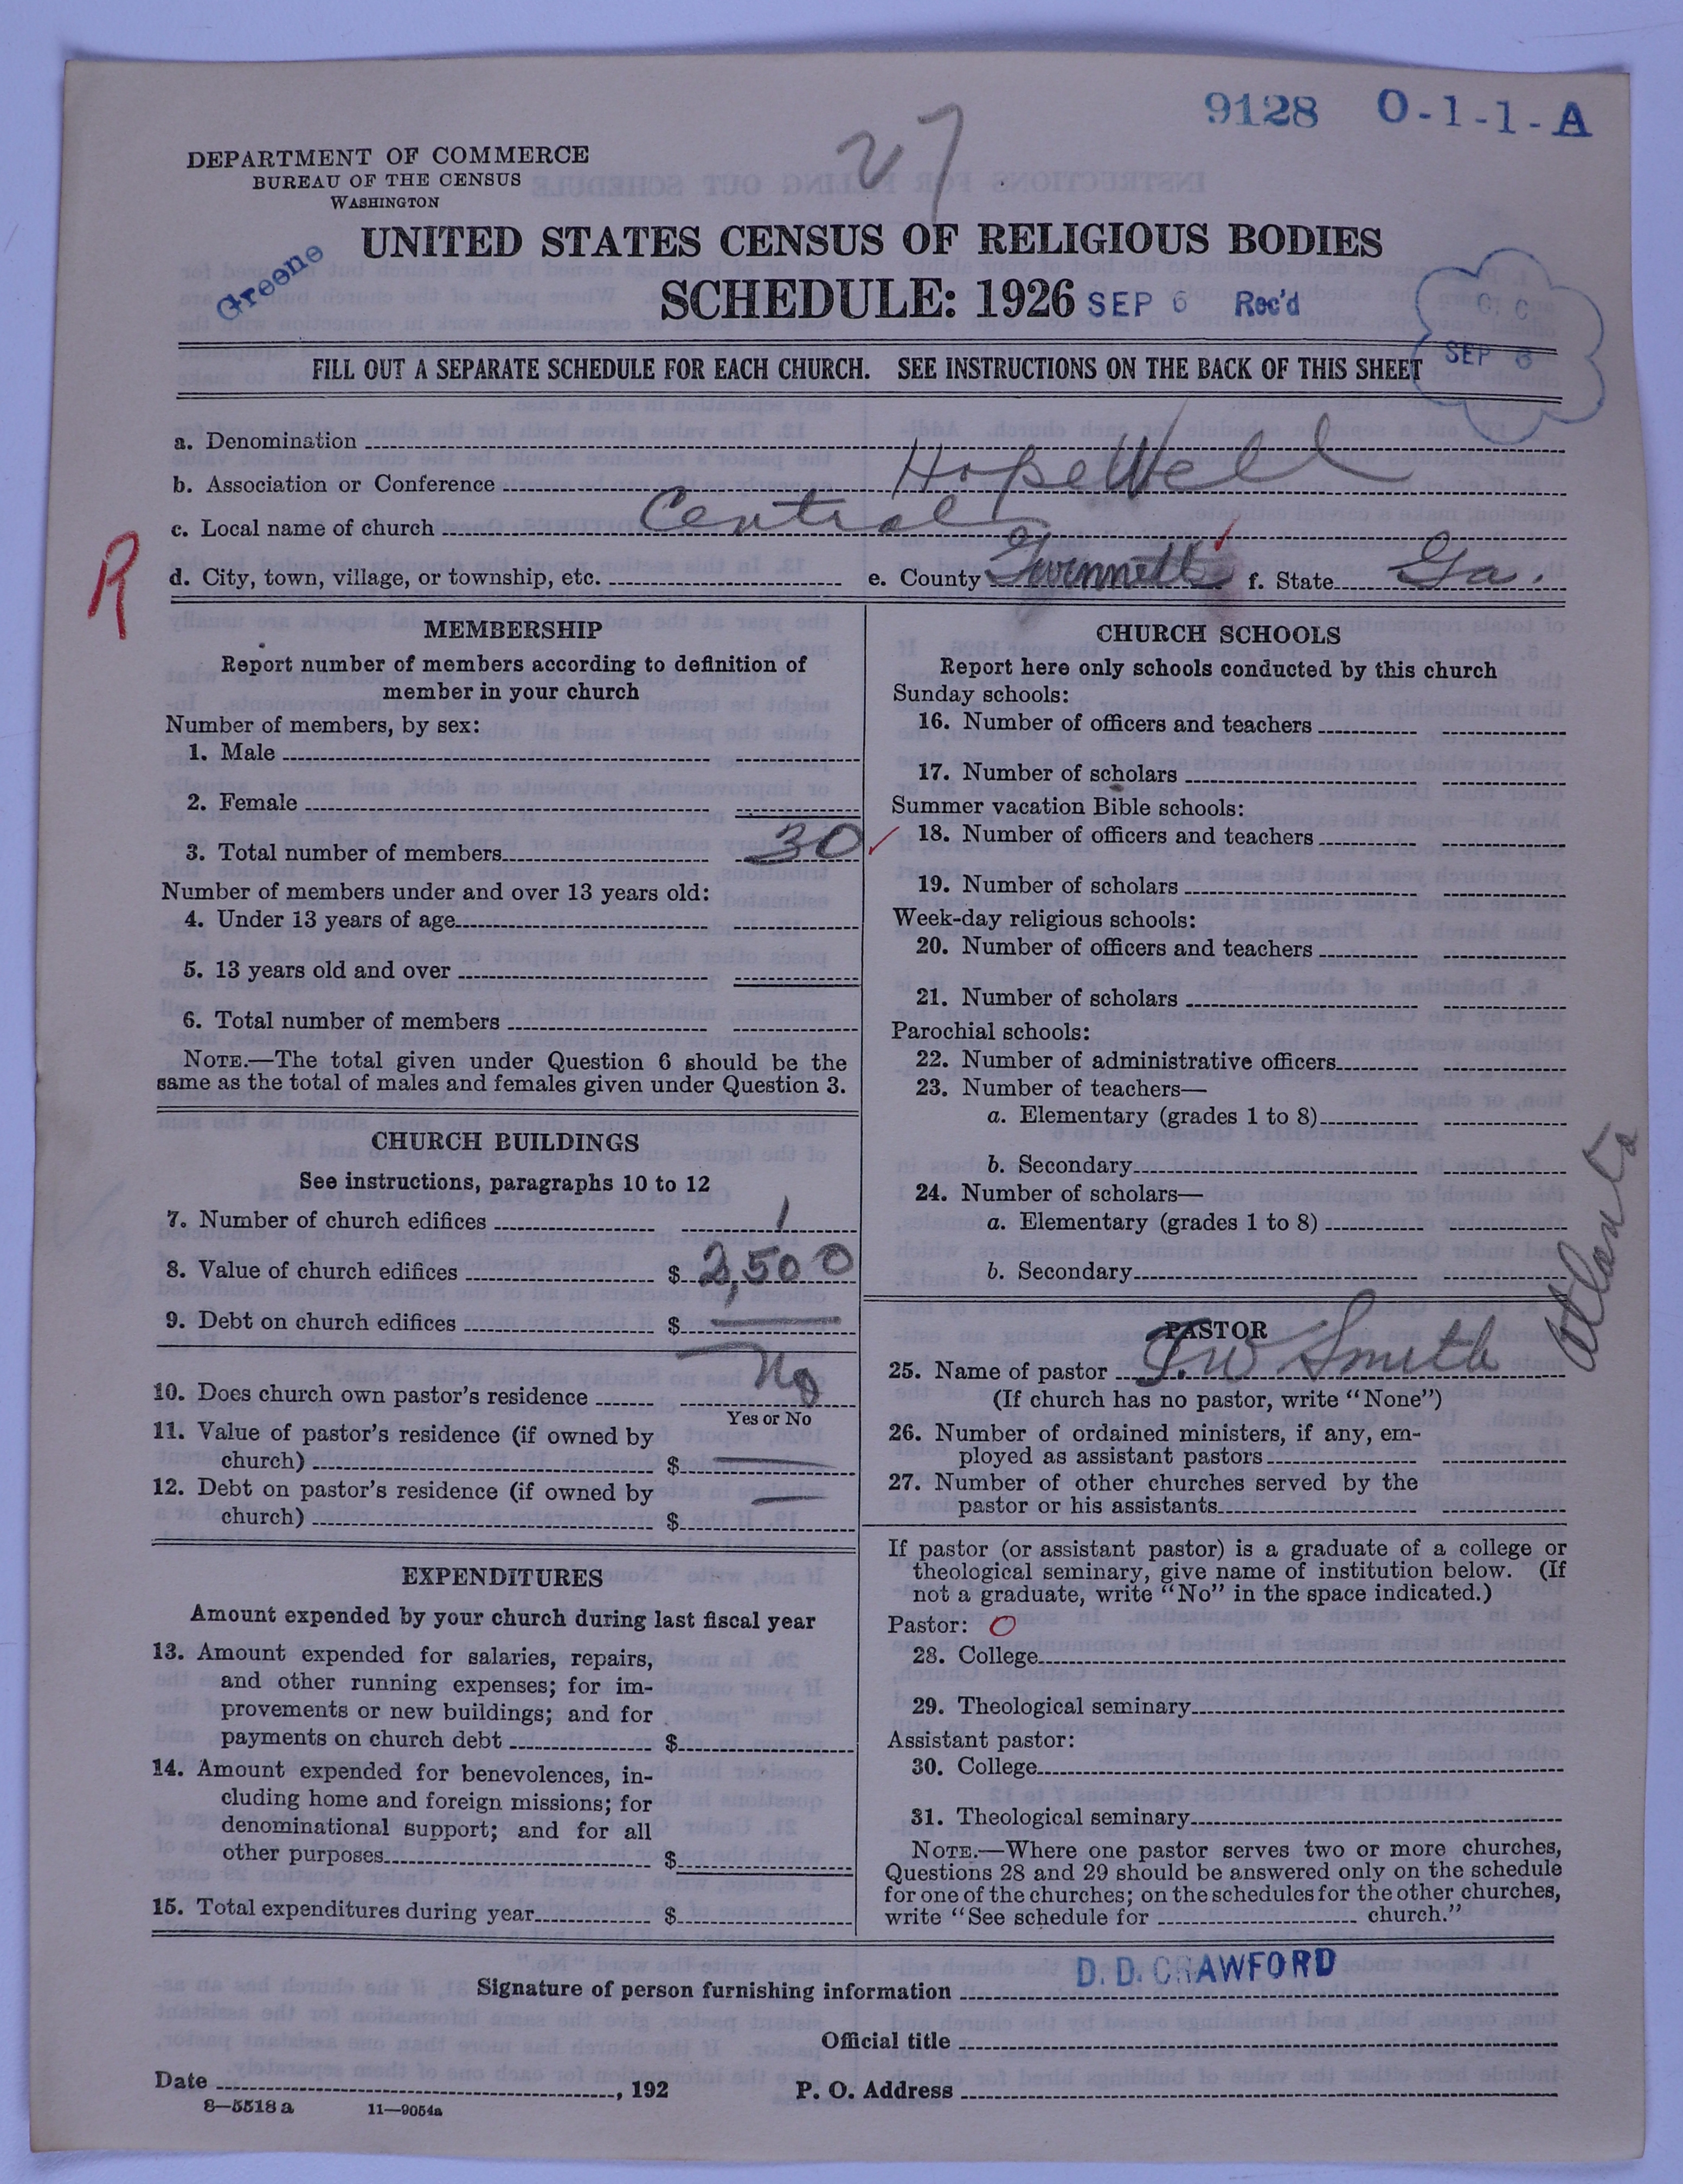 9128 O-1-1-A
27
DEPARTMENT OF COMMERCE
BUREAU OF THE CENSUS
WASHINGTON
Greene
UNITED STATES CENSUS OF RELIGIOUS BODIES
SCHEDULE: 1926 SEP 6 Rec'd
C. C.
SEP 6
FILL OUT A SEPARATE SCHEDULE FOR EACH CHURCH. SEE INSTRUCTIONS ON THE BACK OF THIS SHEET
a. Denomination
b. Association or Conference Hopewell
c. Local name of church Central
R
d. City, town, village, or township, etc. e. County Gwinnett f. State Ga.
MEMBERSHIP
Report number of members according to definition of
member in your church
Number of members, by sex:
1. Male
2. Female
3. Total number of members 30
Number of members under and over 13 years old:
4. Under 13 years of age
5. 13 years old and over
6. Total number of members
NOTE.—The total given under Question 6 should be the
same as the total of males and females given under Question 3.
CHURCH BUILDINGS
See instructions, paragraphs 10 to 12
7. Number of church edifices 1
8. Value of church edifices $ 2,500
9. Debt on church edifices $ —
10. Does church own pastor's residence No
Yes or No
11. Value of pastor's residence (if owned by
church) $ —
12. Debt on pastor's residence (if owned by
church) $ —
EXPENDITURES
Amount expended by your church during last fiscal year
13. Amount expended for salaries, repairs,
and other running expenses; for im-
provements or new buildings; and for
payments on church debt $
14. Amount expended for benevolences, in-
cluding home and foreign missions; for
denominational support; and for all
other purposes $
15. Total expenditures during year $
CHURCH SCHOOLS
Report here only schools conducted by this church
Sunday schools:
16. Number of officers and teachers
17. Number of scholars
Summer vacation Bible schools:
18. Number of officers and teachers
19. Number of scholars
Week-day religious schools:
20. Number of officers and teachers
21. Number of scholars
Parochial schools:
22. Number of administrative officers
23. Number of teachers—
a. Elementary (grades 1 to 8)
b. Secondary
24. Number of scholars—
a. Elementary (grades 1 to 8)
b. Secondary
Atlanta
PASTOR
25. Name of pastor J. W Smith
(If church has no pastor, write "None")
26. Number of ordained ministers, if any, em-
ployed as assistant pastors
27. Number of other churches served by the
pastor or his assistants
If pastor (or assistant pastor) is a graduate of a college or
theological seminary, give name of institution below. (If
not a graduate, write "No" in the space indicated.)
Pastor: O
28. College
29. Theological seminary
Assistant pastor:
30. College
31. Theological seminary
NOTE.—Where one pastor serves two or more churches,
Questions 28 and 29 should be answered only on the schedule
for one of the churches; on the schedules for the other churches,
write "See schedule for church."
Signature of person furnishing information D. D. CRAWFORD
Official title
Date , 192 P. O. Address
8—5518 a 11—9054a